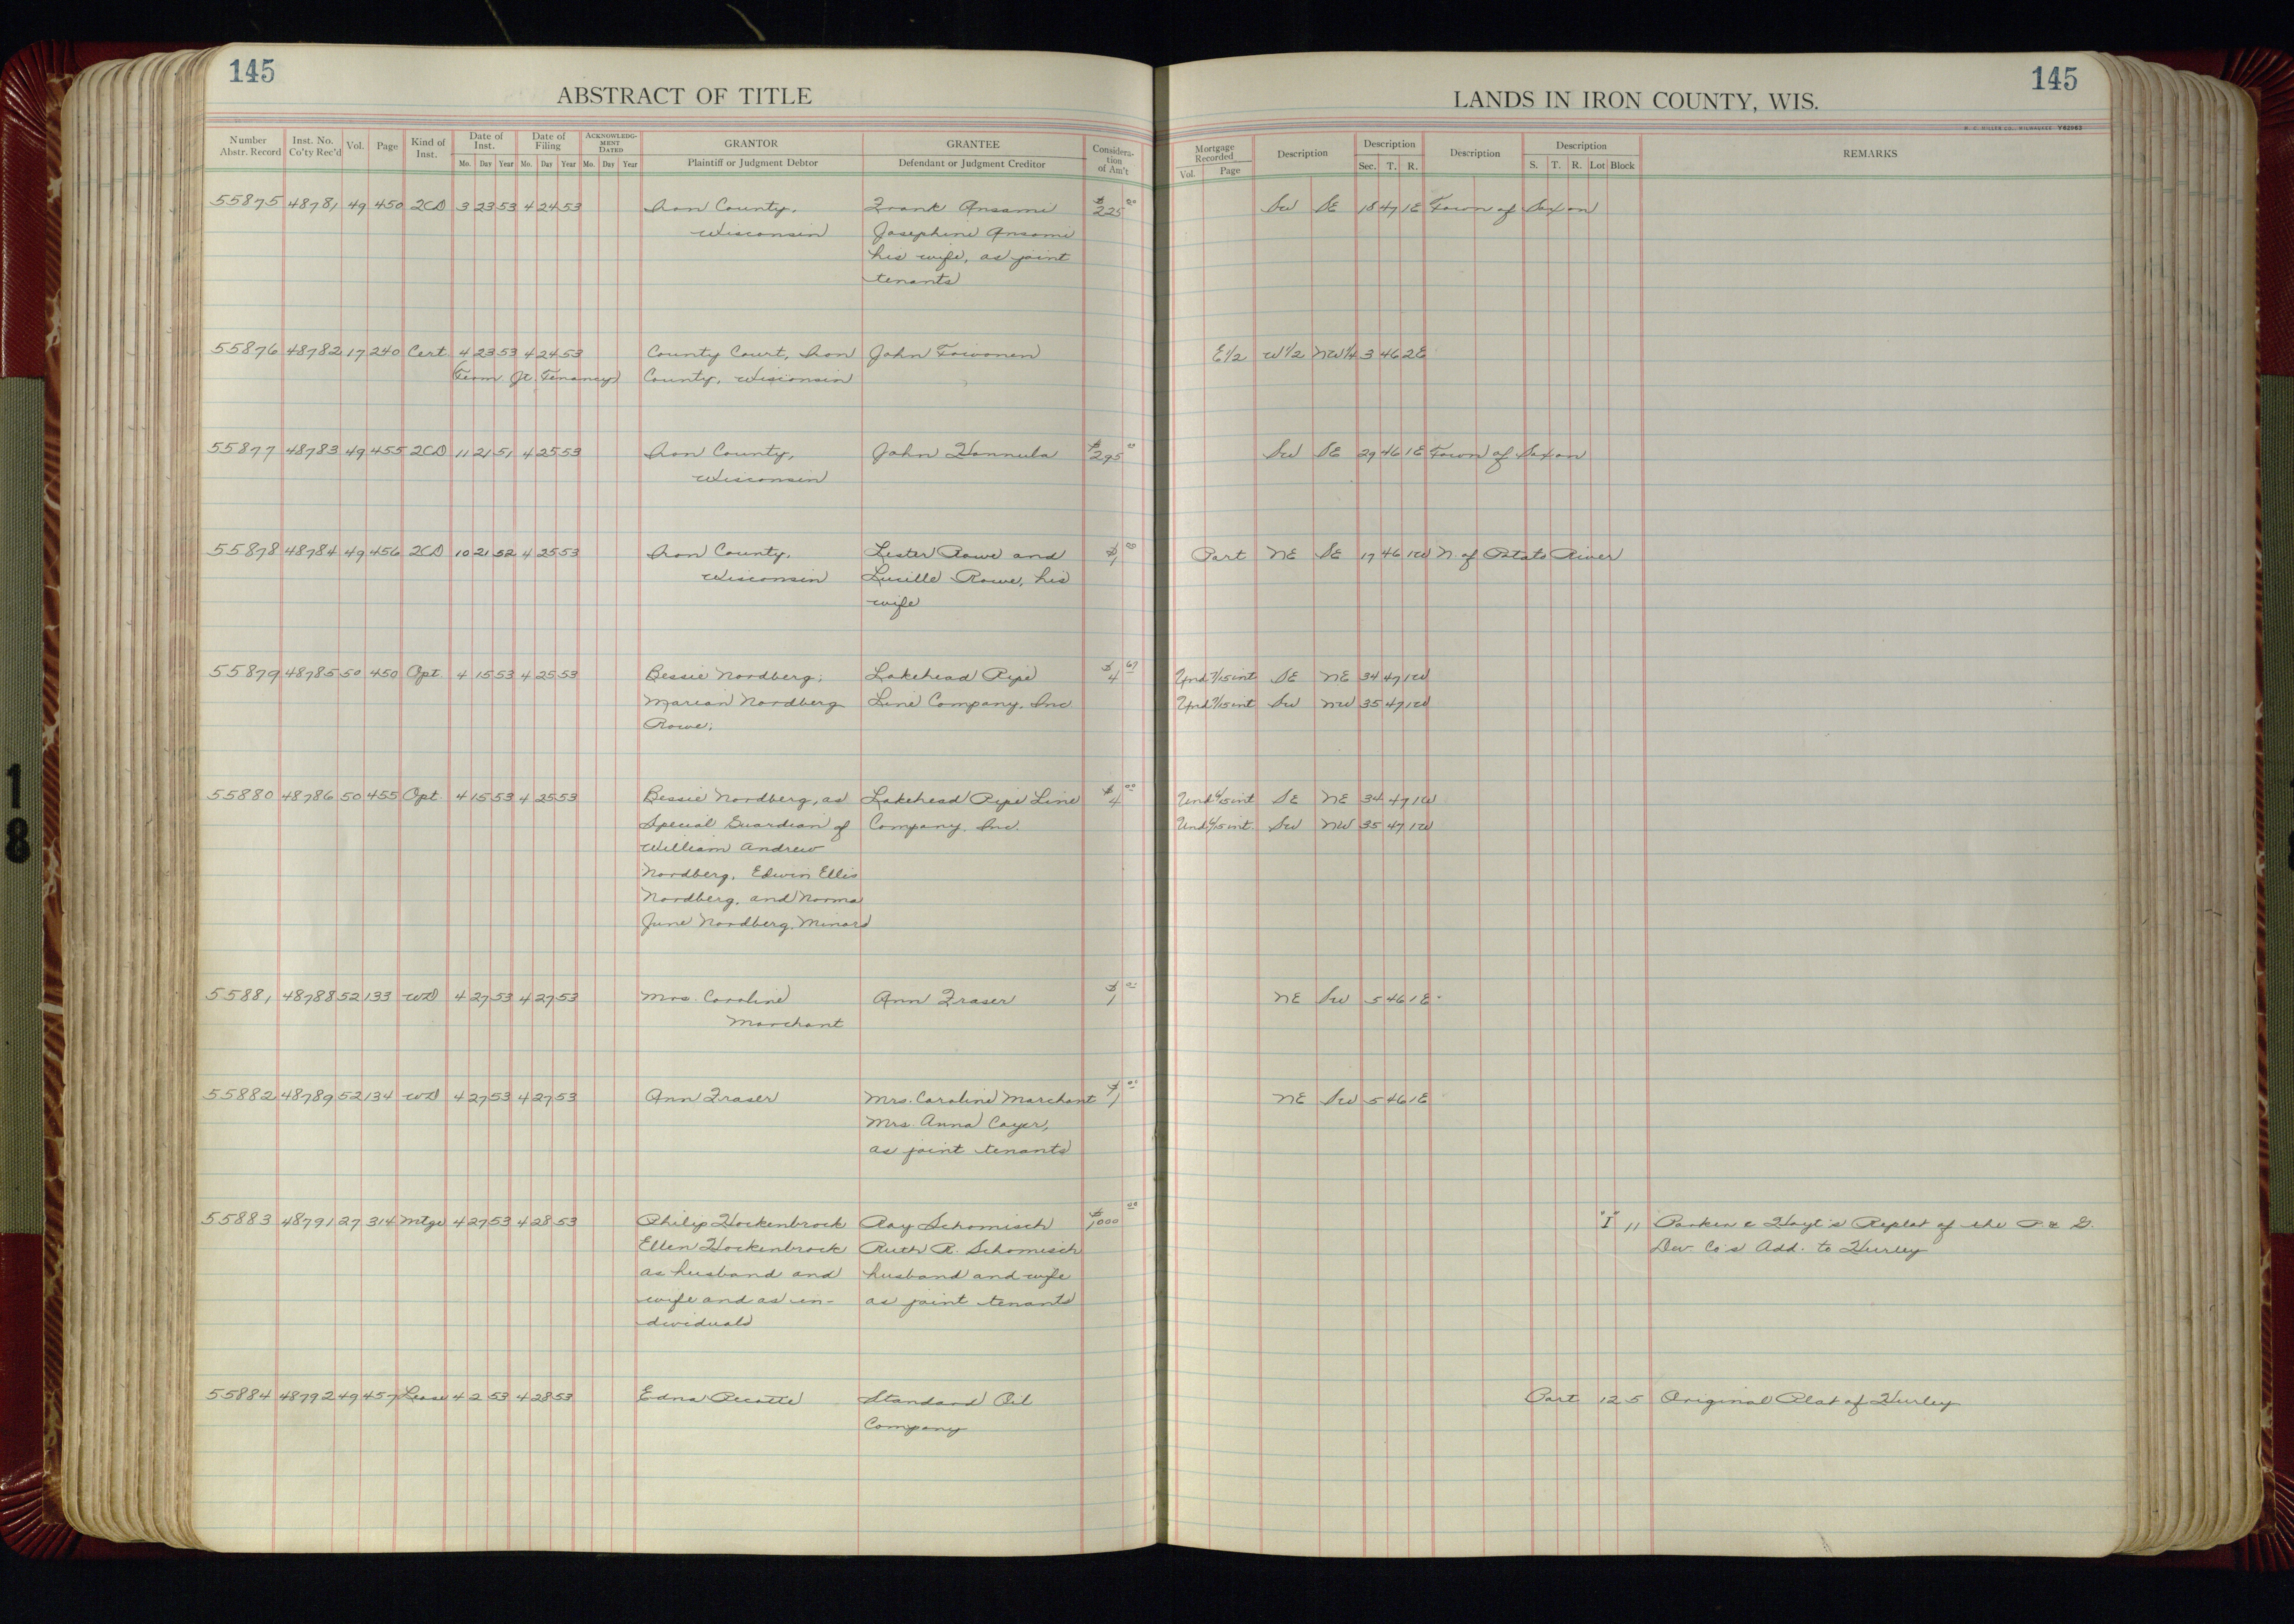 145
ABSTRACT OF TITLE
Number Abstr. Record Inst. No. Co'ty Rec'd Vol. Page Kind of Inst. Date of Inst. Mo. Day Year Date of Filing Mo. Day Year ACKNOWLEDGMENT DATED Mo. Day Year GRANTOR Plaintiff or Judgment Debtor GRANTEE Defendant or Judgment Creditor Consideration of Am't
LANDS IN IRON COUNTY, WIS.
145
H. C. MILLER CO., MILWAUKEE Y62963
Mortgage Recorded Vol. Page Description Description Sec. T. R. Description Description S. T. R. Lot Block REMARKS
55875 48781 49 450 2CD 3 23 53 4 24 53 Iron County, Frank Ansami $225 00 SW SE 18 47 1E Town of Saxon
Wisconsin Josephine Ansami
his wife, as joint
tenants
55876 48782 17 240 Cert. 4 23 53 4 24 53 County Court, Iron John Toivonen E1/2 W1/2 NW1/4 3 46 2E
(Term Jt. Tenancy) County, Wisconsin
55877 48783 49 455 2CD 11 21 51 4 25 53 Iron County, John Hannula $295 00 SW SE 29 46 1E Town of Saxon
Wisconsin
55878 48784 49 456 2CD 10 21 52 4 25 53 Iron County, Lester Rowe and $1 00 Part NE SE 17 46 1W N. of Potato River
Wisconsin Lucille Rowe, his
wife
55879 48785 50 450 Opt. 4 15 53 4 25 53 Bessie Nordberg; Lakehead Pipe $4 67 Und. 7/15 int SE NE 34 47 1W
Marian Nordberg Line Company, Inc Und. 7/15 int SW NW 35 47 1W
Rowe;
55880 48786 50 455 Opt. 4 15 53 4 25 53 Bessie Nordberg, as Lakehead Pipe Line $4 00 Und. 6/15 int SE NE 34 47 1W
Special Guardian of Company, Inc. Und. 6/15 int. SW NW 35 47 1W
William Andrew
Nordberg, Edwin Ellis
Nordberg, and Norma
June Nordberg, Minors
55881 48788 52 133 WD 4 27 53 4 27 53 Mrs. Caroline Ann Fraser $1 00 NE SW 5 46 1E
Marchant
55882 48789 52 134 WD 4 27 53 4 27 53 Ann Fraser Mrs. Caroline Marchant $1 00 NE SW 5 46 1E
Mrs. Anna Cayer,
as joint tenants
55883 48791 27 314 Mtge 4 27 53 4 28 53 Philip Hockenbrock Ray Schomisch $1,000 00 "I" 11 Parker & Hoyt's Replat of the P. & G.
Ellen Hockenbrock Ruth R. Schomisch Dev. Co's Add. to Hurley
as husband and husband and wife
wife and as in- as joint tenants
dividuals
55884 48792 49 457 Lease 4 2 53 4 28 53 Edna Standard Oil Part 12 5 Original Plat of Hurley
Company
18